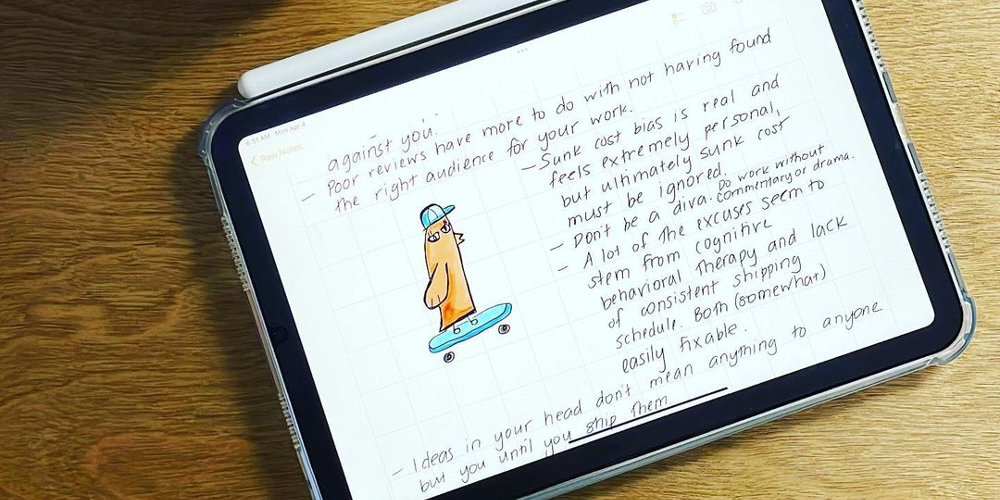 6:51 AM Mon Apr 4
Raw Notes
against you.
- Poor reviews have more to do with not having found
the right audience for your work.
- Sunk cost bias is real and
feels extremely personal,
but ultimately sunk cost
must be ignored.
- Don't be a diva. Do work without
commentary or drama.
- A lot of the excuses seem to
stem from cognitive
behavioral therapy and lack
of consistent shipping
schedule. Both (somewhat)
easily fixable.
- Ideas in your head don't mean anything to anyone
but you until you ship them